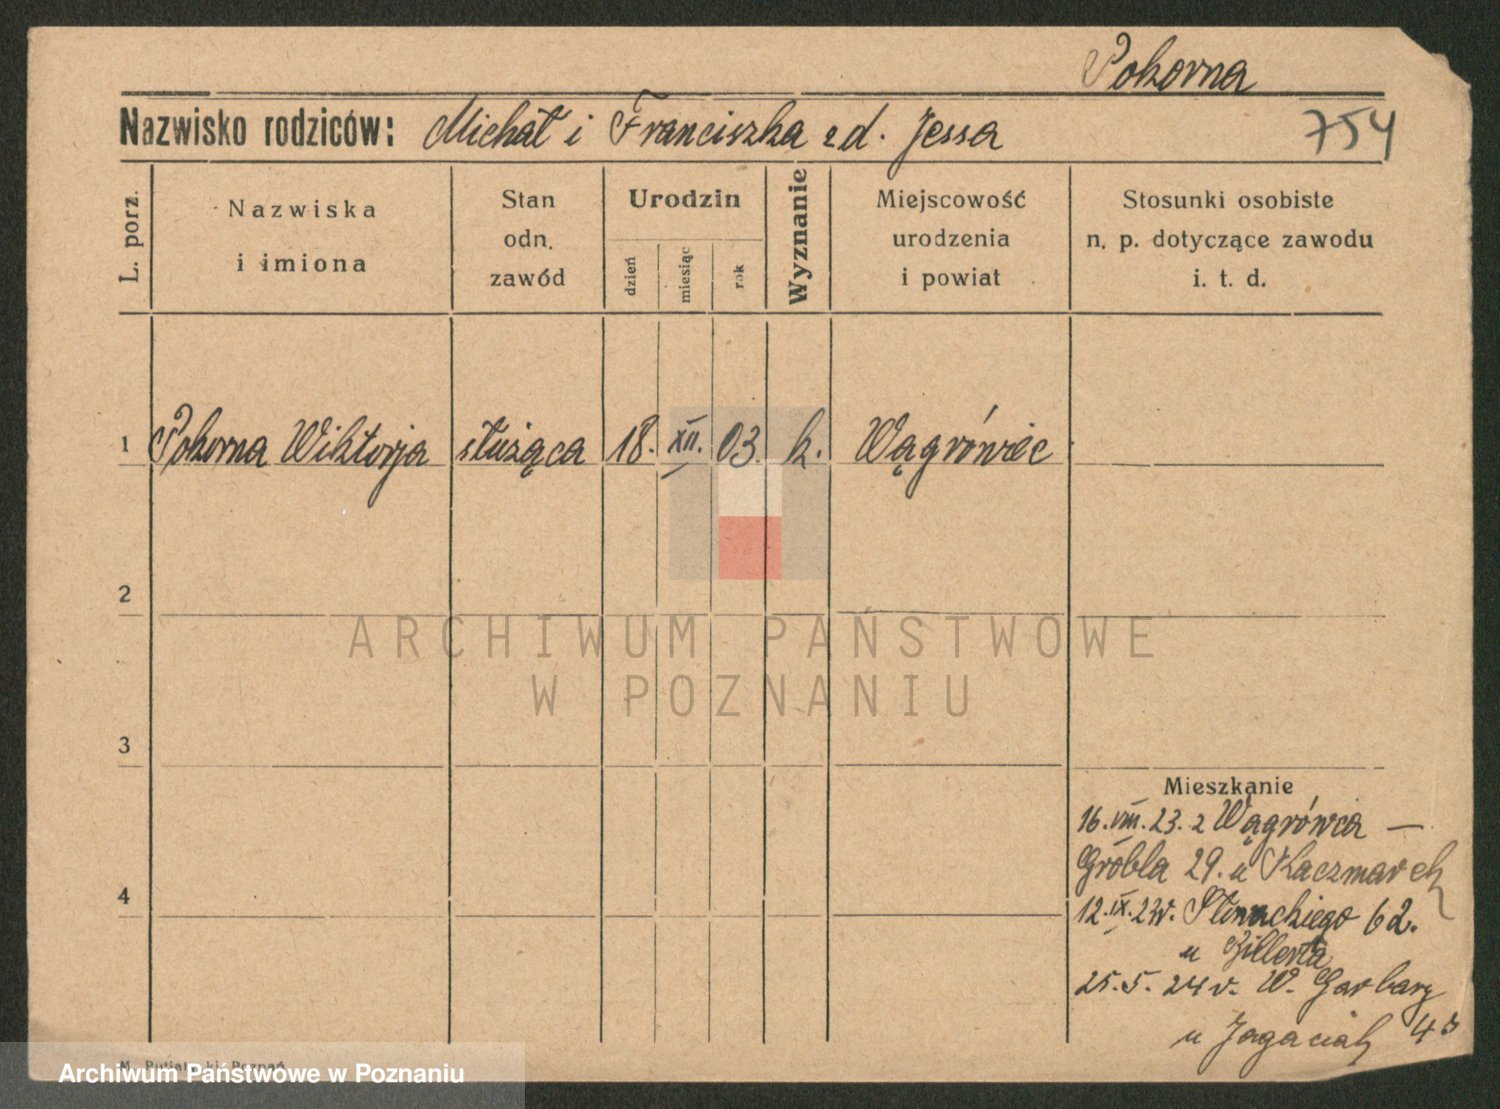 Pokorna
Nazwisko rodziców: Michał i Franciszka zd. Jessa
754
L. porz.
Nazwiska
i imiona
Stan
odn.
zawód
Urodzin
dzień
miesiąc
rok
Wyznanie
Miejscowość
urodzenia
i powiat
Stosunki osobiste
n. p. dotyczące zawodu
i. t. d.
1 Pokorna Wiktorja służąca 18. XII. 03. k. Wągrówiec
2
ARCHIWUM PAŃSTWOWE
W POZNANIU
3
Mieszkanie
16.VIII.23. z Wągrówca —
Grobla 29. u Kaczmarek
4
12.IX.23r. Słowackiego 62.
u
25.5.24r. W. Garbary
u 43
Archiwum Państwowe w Poznaniu